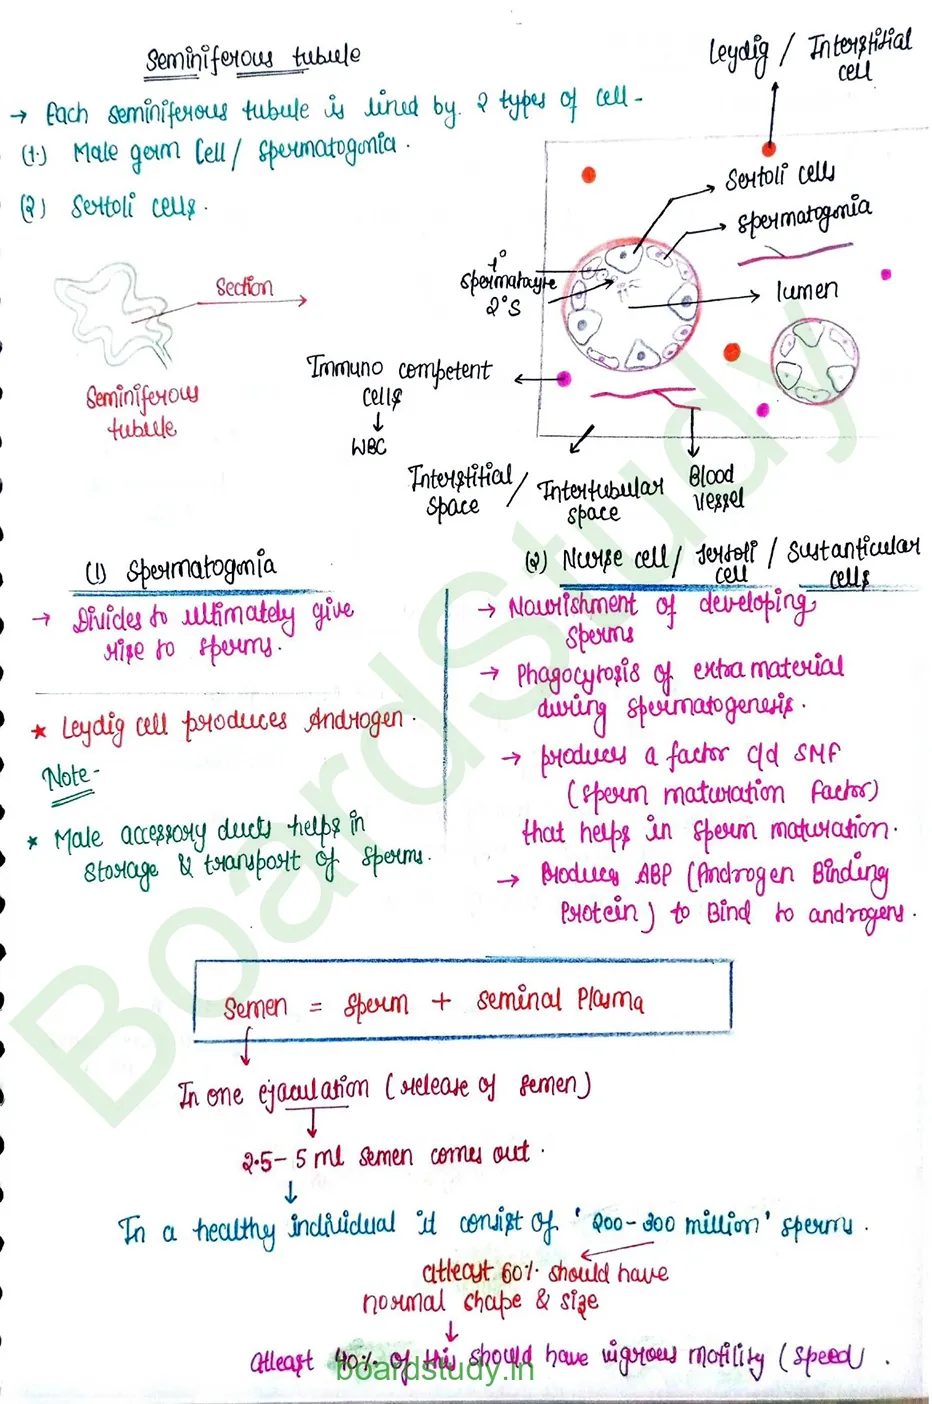 Seminiferous tubule
Leydig / Interstitial
cell
→ Each seminiferous tubule is lined by 2 types of cell -
(1.) Male germ Cell / spermatogonia.
(2) Sertoli cells.
Sertoli cells
spermatogonia
1°
spermatocyte
2°s
lumen
Section
Seminiferous
tubule
Immuno competent
cells
↓
WBC
Interstitial
space /
Intertubular
space
Blood
vessel
(1) Spermatogonia
→ Divides to ultimately give
rise to sperms.
★ Leydig cell produces Androgen.
Note -
★ Male accessory ducts helps in
storage & transport of sperms.
(2) Nurse cell / sertoli / Sustanticular
cell cells
→ Nourishment of developing
sperms
→ Phagocytosis of extra material
during spermatogenesis.
→ produces a factor c/d SMF
(sperm maturation factor)
that helps in sperm maturation.
→ Produces ABP (Androgen Binding
Protein) to Bind to androgens.
Semen = sperm + seminal Plasma
In one ejaculation (release of semen)
2.5 - 5 ml semen comes out.
In a healthy individual it consist of '200-300 million' sperms.
atleast 60% should have
normal shape & size
atleast 40% of this should have vigrous motility (speed).
BoardStudy
boardstudy.in